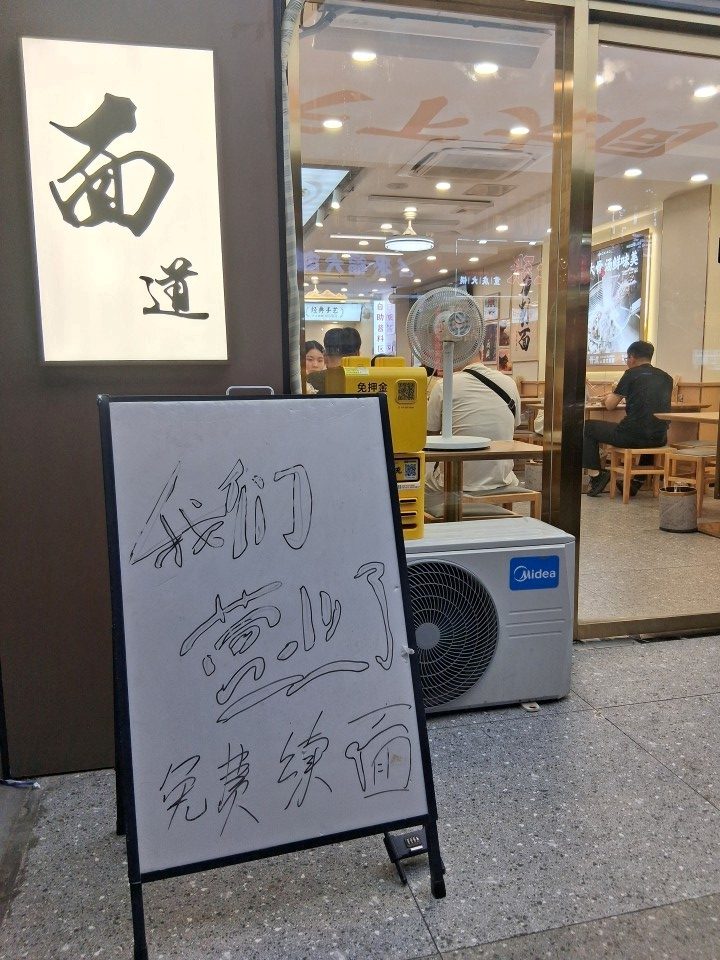 面
道
我们
营业了
免费续面
免押金
Midea
经典手艺
自助酱料区